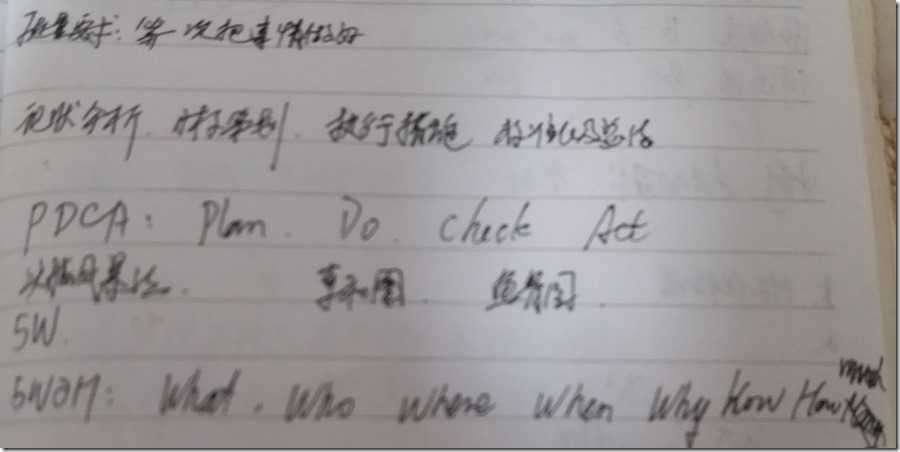 质量要求：第一次把事情做好
现状分析、对策策划、执行措施、标准化及总结
PDCA: Plan. Do. Check Act
头脑风暴法. 亲和图. 鱼骨图.
5W.
5W2H: What. Who Where When Why How How much